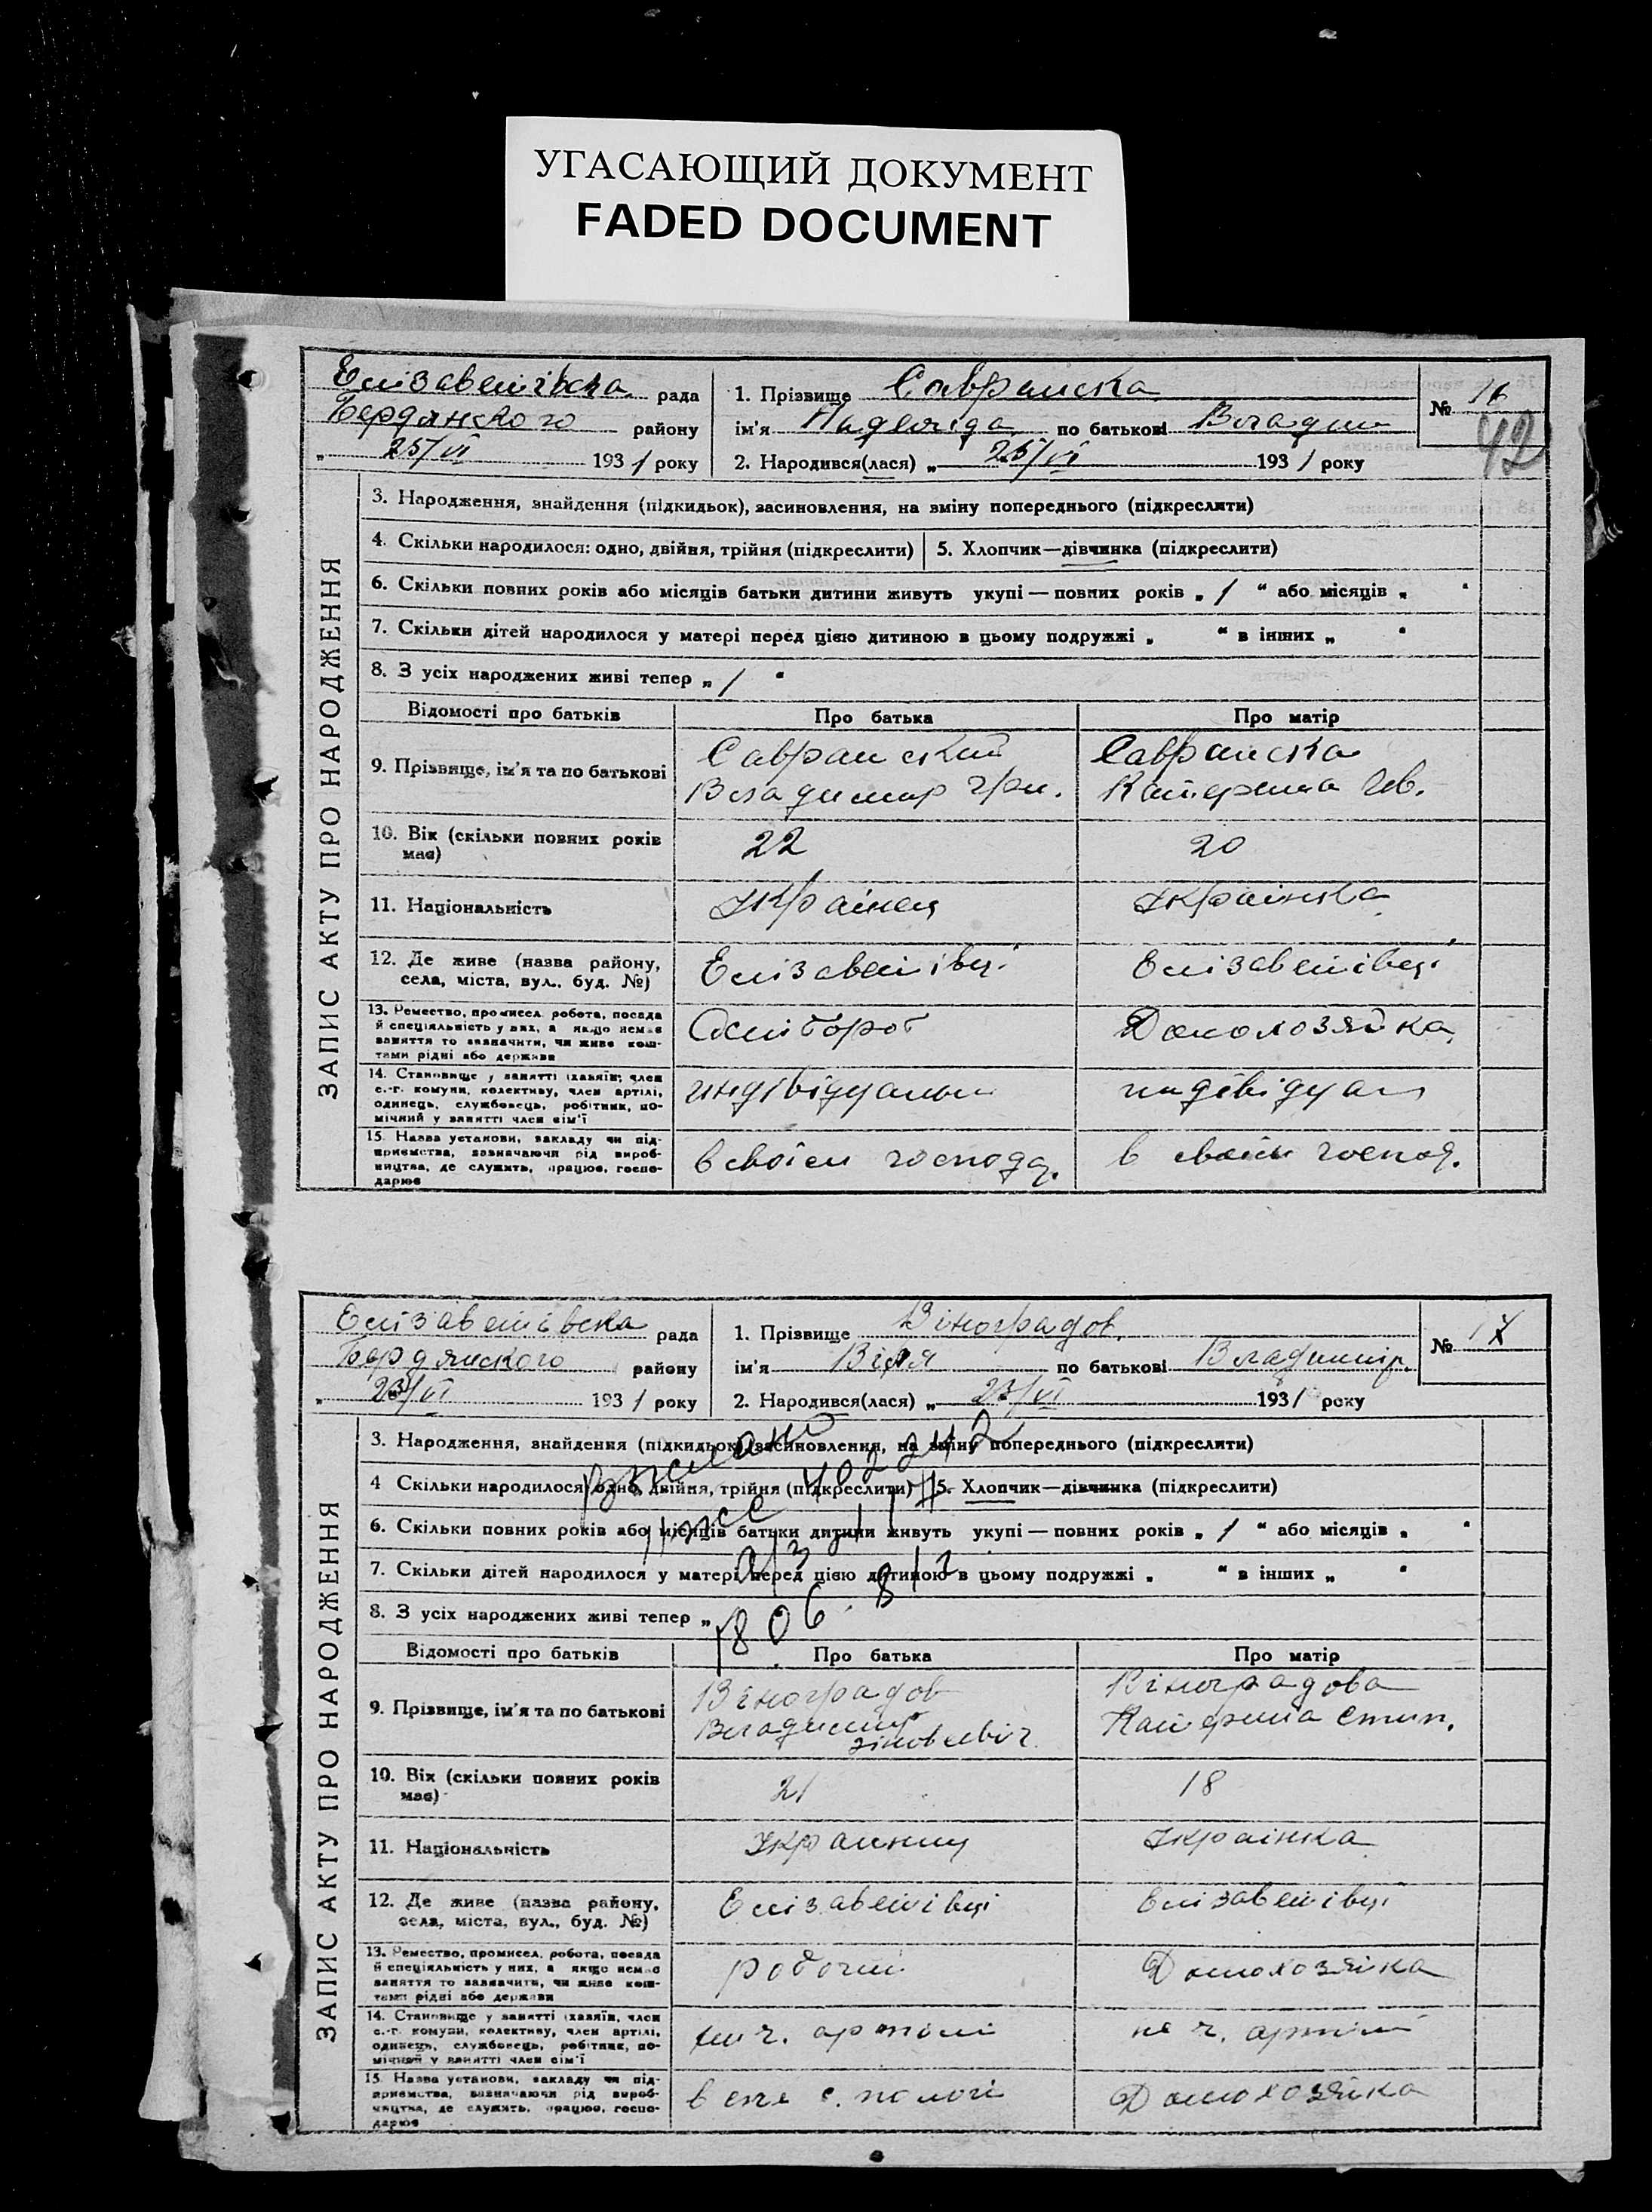 УГАСАЮЩИЙ ДОКУМЕНТ
FADED DOCUMENT
Єлізаветівска рада
Бердянского району
„ 25/VI 1931 року
1. Прізвище Савранска
ім'я Надежда по батькові Владим
2. Народився(лася) „ 25/VI 1931 року
№ 16
42
ЗАПИС АКТУ ПРО НАРОДЖЕННЯ
3. Народження, знайдення (підкидьок), засиновлення, на зміну попереднього (підкреслити)
4. Скільки народилося: одно, двійня, трійня (підкреслити) 5. Хлопчик—дівчинка (підкреслити)
6. Скільки повних років або місяців батьки дитини живуть укупі — повних років „ 1 “ або місяців „ “
7. Скільки дітей народилося у матері перед цією дитиною в цьому подружжі „ “ в інших „ “
8. З усіх народжених живі тепер „ 1 “
Відомості про батьків Про батька Про матір
9. Прізвище, ім'я та по батькові
Савранский
Владимир Гри.
Савранска
Катерина Ів.
10. Вік (скільки повних років має) 22 20
11. Національність Українец Українка
12. Де живе (назва району, села, міста, вул., буд. №)
Єлізаветівці Єлізаветівці
13. Ремество, промисел, робота, посада
й спеціяльність у них, а якщо немає
заняття то зазначити, чи живе кош-
тами рідні або держави
Домохозяйка
14. Становище у занятті (хазяїн, член
с.-г. комуни, колективу, член артілі,
одинець, службовець, робітник, по-
мічний у занятті член сім'ї
индівідуальн индівідуал
15. Назва установи, закладу чи під-
приємства, зазначаючи рід вироб-
ництва, де служить, працює, госпо-
дарює
в своїем господ. в своїм господ.
Єлізаветівска рада
Бердянского району
„ 23/VI 1931 року
1. Прізвище Віноградов
ім'я Віля по батькові Владимир.
2. Народився(лася) „ 23/VI 1931 року
№ 17
ЗАПИС АКТУ ПРО НАРОДЖЕННЯ
3. Народження, знайдення (підкидьок), засиновлення, на зміну попереднього (підкреслити)
4 Скільки народилося: одно, двійня, трійня (підкреслити) 5. Хлопчик—дівчинка (підкреслити)
6. Скільки повних років або місяців батьки дитини живуть укупі — повних років „ 1 “ або місяців „ “
7. Скільки дітей народилося у матері перед цією дитиною в цьому подружжі „ “ в інших „ “
8. З усіх народжених живі тепер „
Відомості про батьків Про батька Про матір
9. Прізвище, ім'я та по батькові
Віноградов
Владимир
Зіновеевіч
Віноградова
Катерина Степ.
10. Вік (скільки повних років має) 21 18
11. Національність Украинец Українка
12. Де живе (назва району, села, міста, вул., буд. №)
Єлізаветівці Єлізаветівці
13. Ремество, промисел, робота, посада
й спеціяльність у них, а якщо немає
заняття то зазначити, чи живе кош-
тами рідні або держави
робочий Домохозяйка
14. Становище у занятті (хазяїн, член
с.-г. комуни, колективу, член артілі,
одинець, службовець, робітник, по-
мічний у занятті член сім'ї
ч. артілі не ч. артілі
15. Назва установи, закладу чи під-
приємства, зазначаючи рід вироб-
ництва, де служить, працює, госпо-
дарює
Домохозяйка